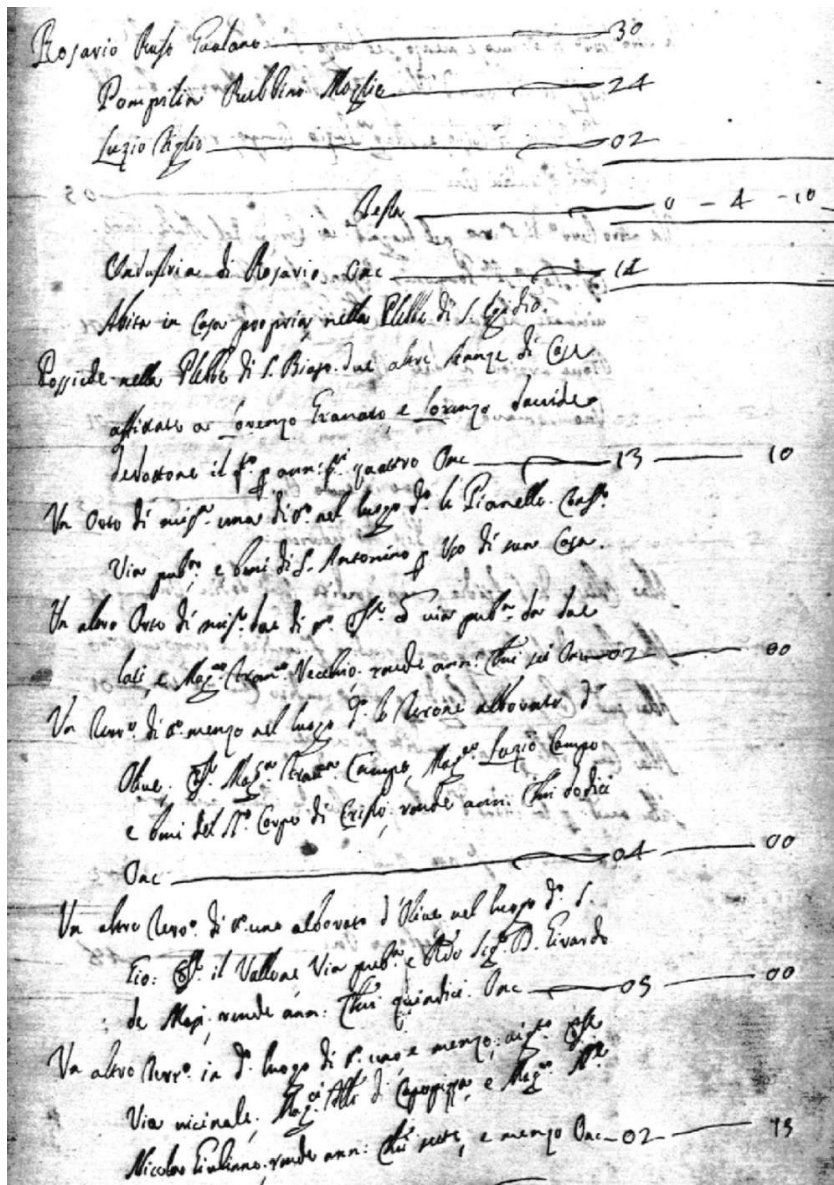 Rosario Ruso Gualano 30
Pompilia Rubbino Moglie 24
Luzio Figlio 02
Testa 0 - 4 - 10
Industria di Rosario Onc 12
Abita in Casa propria nella Plebbe di S. Egidio.
Possiede nella Plebbe di S. Biaso due altre stanze di Case
affittate a Lorenzo Granato, e Lorenzo Davide
il f.º p ann: quattro Onc 13 10
Un Orto di mis.ª una di t.º nel luogo d.º le Pianelle. Conf.º
Via pub.ª, e beni di S. Antonino p Uso di sua Casa.
Un altro Orto di mis.ª due di t.º via pub.ª da due
lati, e Mag.co Vecchio. rende ann: sei Onc 02 00
Un Terr.º di t.º menzo nel luogo d.º alborato d'
Olive, Mag.co Campo, Mag.co Luzio Campo
e beni del Corpo di Cristo, rende ann: dodici
Onc 04 00
Un altro Terr.º di t.º uno alborato d'Olive nel luogo d.º S.
Gio: il Vallone Via pub.ª e Rdo Sig.r D. Girardo
de rende ann: quindici. Onc 05 00
Un altro Terr.º in d.º luogo di t.º uno e menzo
Via vicinale, e Mag.co
Nicolao Giuliano. rende ann: sette, e menzo Onc 02 15